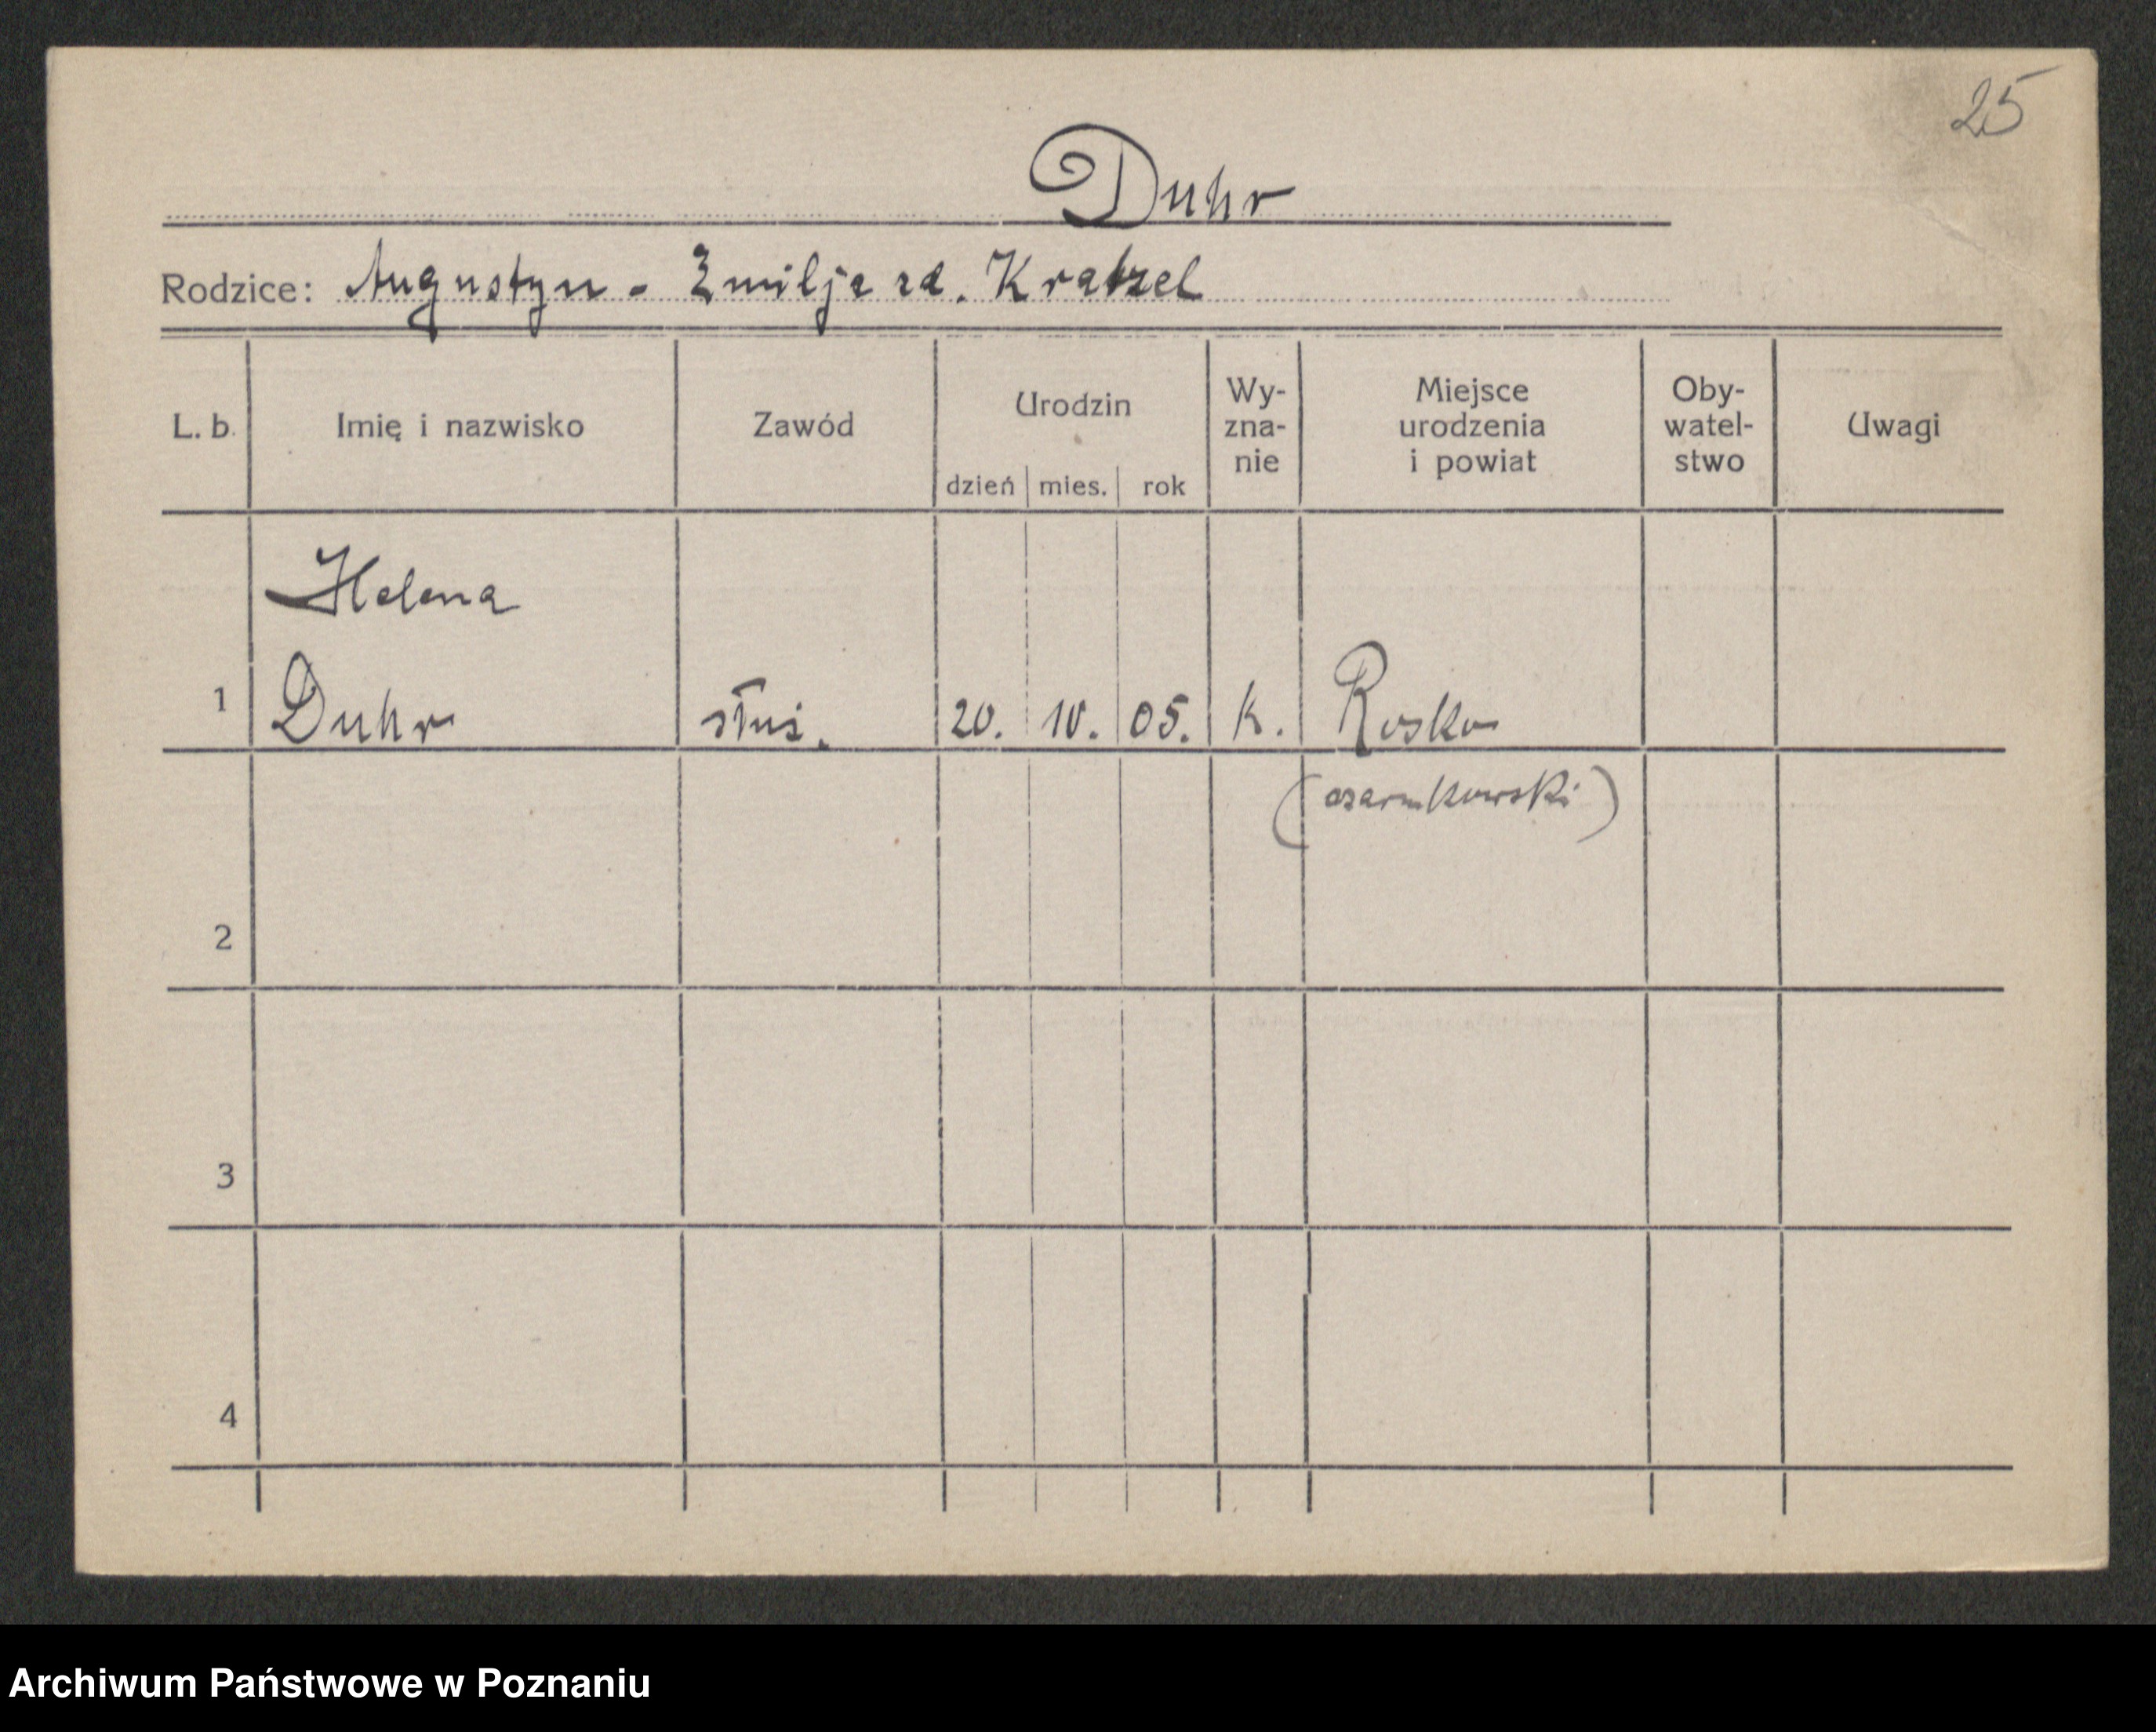 25
Duhr
Rodzice: Augustyn - Emilja zd. Kratzel
L. b. Imię i nazwisko Zawód Urodzin dzień mies. rok Wy-zna-nie Miejsce urodzenia i powiat Oby-watel-stwo Uwagi
Helena
1 Duhr służ. 20. 10. 05. k. Rosko
(czarnkowski)
2
3
4
Archiwum Państwowe w Poznaniu